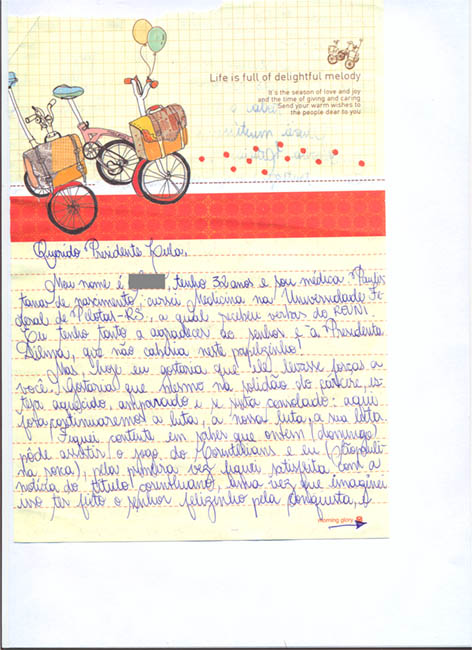 Life is full of delightful melody
It's the season of love and joy
and the time of giving and caring
Send your warm wishes to
the people dear to you
Querido Presidente Lula,
Meu nome é , tenho 32 anos e sou médica. Paulis
tana de nascimento, cursei Medicina na Universidade Fe
deral de Pelotas-RS, a qual recebeu verbas do REUNI.
Eu tenho tanto a agradecer ao senhor e à Presidenta
Dilma, que não caberia neste papelzinho!
Mas, hoje eu gostaria que ele levasse forças a
você! Gostaria que mesmo na solidão do cárcere, es
teja aquecido, amparado e se sinta consolado: aqui
fora, continuaremos a luta, a nossa luta, a sua luta.
Fiquei contente em saber que ontem (domingo)
pôde assistir o jogo do Corinthians e eu (são pauli
na roxa), pela primeira vez fiquei satisfeita com a
notícia do título corinthiano, uma vez que imaginei
isso ter feito o senhor felizinho pela conquista,
morning glory